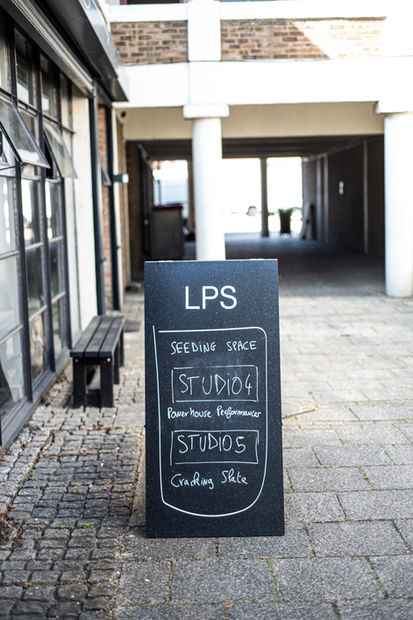 LPS
SEEDING SPACE
STUDIO 4
Powerhouse Performancer
STUDIO 5
Cracking Slate